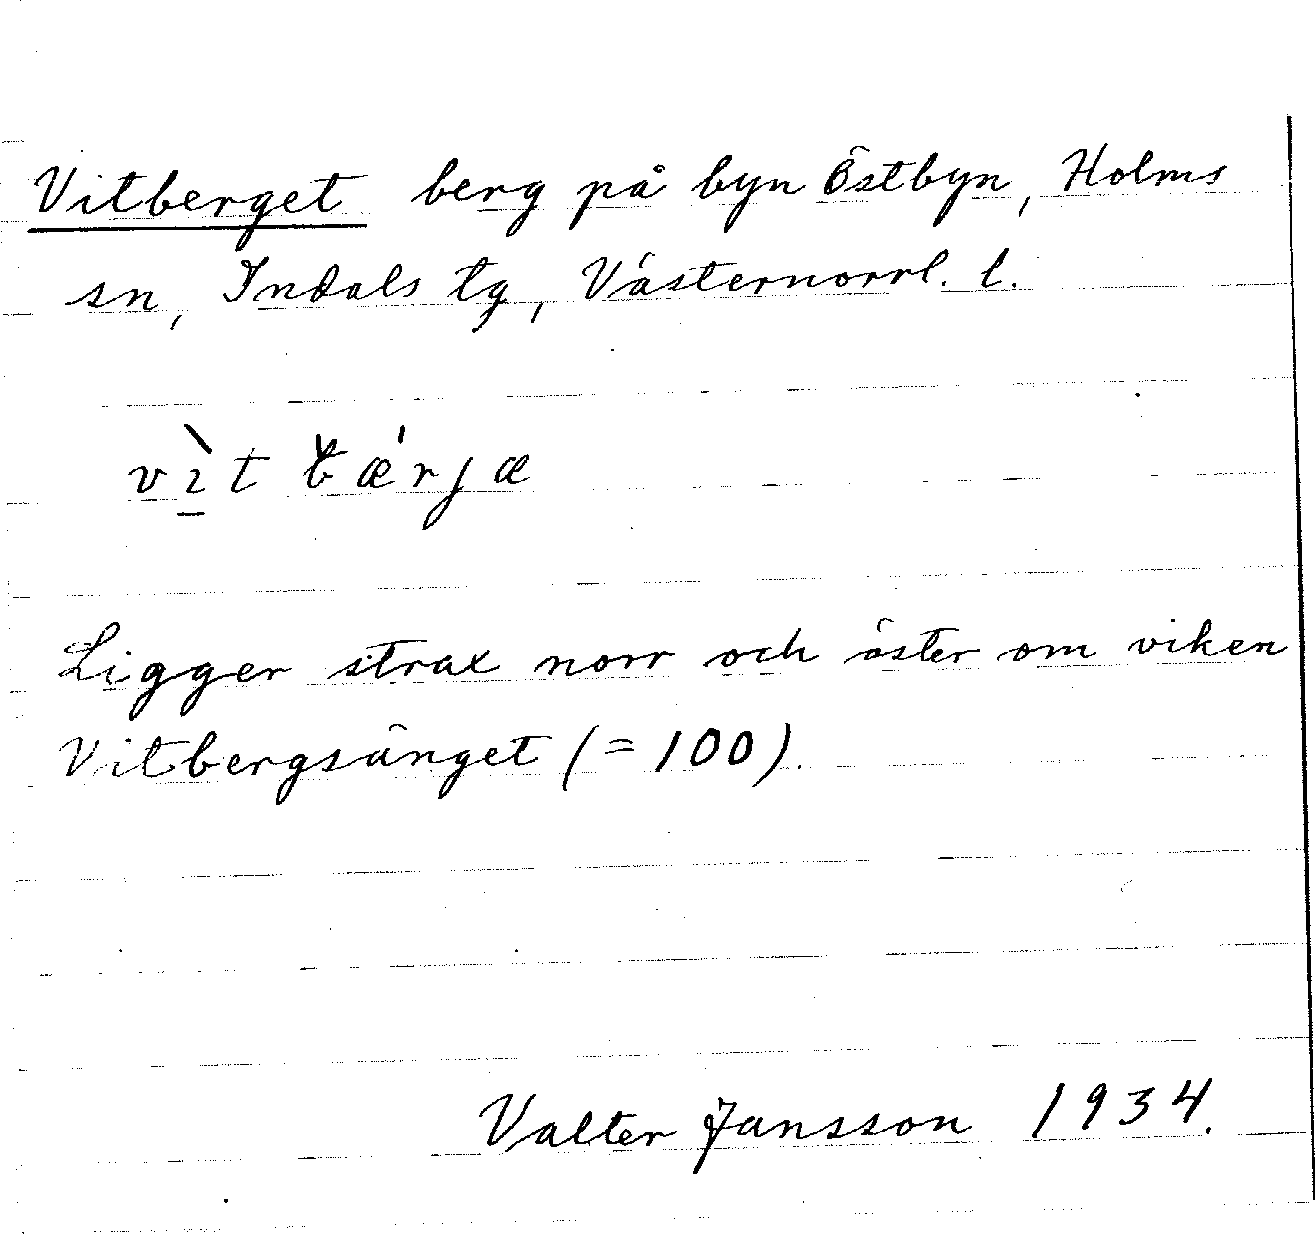 Vitberget berg på byn Östbyn, Holms
sn, Indals tg, Västernorrl. l.
vìt bǽrjæ
Ligger strax norr och öster om viken
Vitbergsänget (= 100).
Valter Jansson 1934.